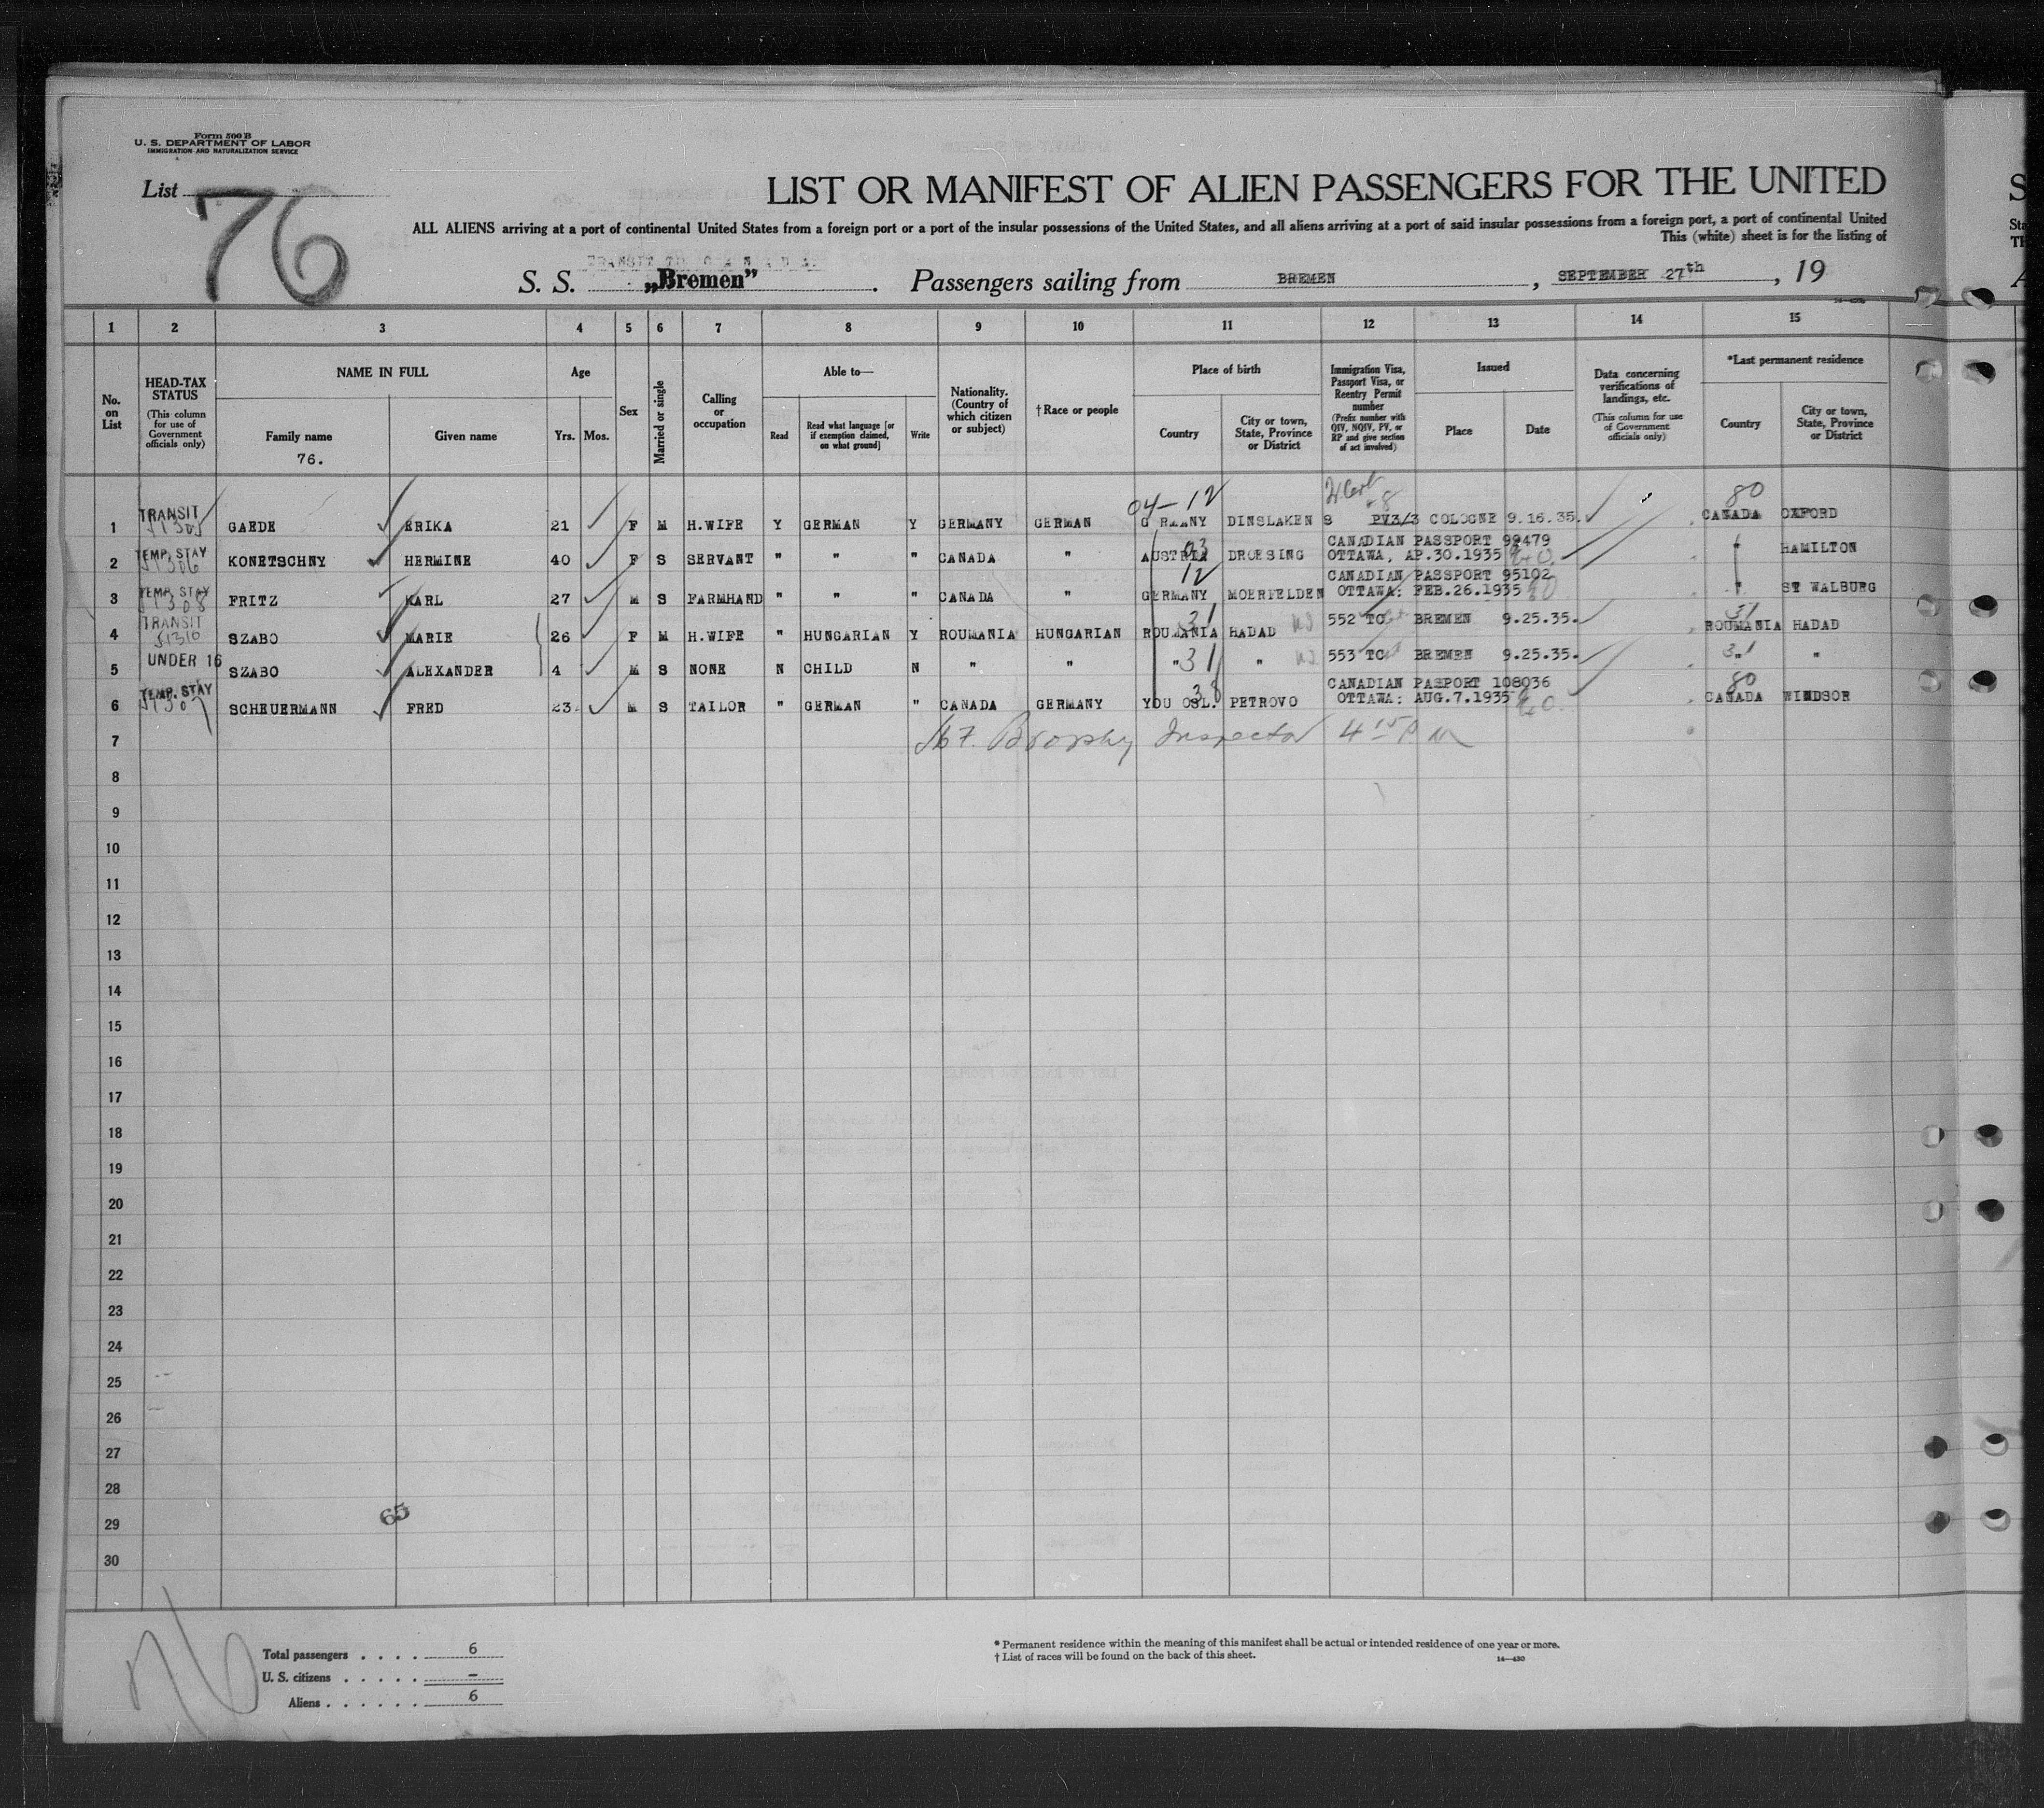 Form 500 B
U. S. DEPARTMENT OF LABOR
IMMIGRATION AND NATURALIZATION SERVICE
List 76
LIST OR MANIFEST OF ALIEN PASSENGERS FOR THE UNITED
ALL ALIENS arriving at a port of continental United States from a foreign port or a port of the insular possessions of the United States, and all aliens arriving at a port of said insular possessions from a foreign port, a port of continental United
This (white) sheet is for the listing of
TRANSIT TO CANADA
S. S. „Bremen” . Passengers sailing from BREMEN , SEPTEMBER 27th , 19
1 2 3 4 5 6 7 8 9 10 11 12 13 14 15
No. on List
HEAD-TAX STATUS
(This column for use of Government officials only)
NAME IN FULL
Family name
76.
Given name
Age
Yrs. Mos.
Sex
Married or single
Calling or occupation
Able to—
Read
Read what language [or if exemption claimed, on what ground]
Write
Nationality. (Country of which citizen or subject)
† Race or people
Place of birth
Country
City or town, State, Province or District
Immigration Visa, Passport Visa, or Reentry Permit number
(Prefix number with QIV, NQIV, PV, or RP and give section of act involved)
Issued
Place
Date
Data concerning verifications of landings, etc.
(This column for use of Government officials only)
*Last permanent residence
Country
City or town, State, Province or District
04-12 80
1 TRANSIT GAEDE ERIKA 21 F M H.WIFE Y GERMAN Y GERMANY GERMAN G RMANY DINSLAKEN S PV3/3 COLOGNE 9.16.35. CANADA OXFORD
CANADIAN PASSPORT 99479
2 TEMP. STAY 51306 KONETSCHNY HERMINE 40 F S SERVANT " " " CANADA " AUSTRIA 03 DROESING OTTAWA, AP.30.1935 " HAMILTON
12 CANADIAN PASSPORT 95102
3 TEMP. STAY 51308 FRITZ KARL 27 M S FARMHAND " " " CANADA " GERMANY MOERFELDEN OTTAWA: FEB.26.1935 " ST WALBURG
4 TRANSIT 51310 SZABO MARIE 26 F M H.WIFE " HUNGARIAN Y ROUMANIA HUNGARIAN ROUMANIA 31 HADAD 552 TC BREMEN 9.25.35. 31 ROUMANIA HADAD
5 UNDER 16 SZABO ALEXANDER 4 M S NONE N CHILD N " " " 31 " 553 TC BREMEN 9.25.35. 31 " "
CANADIAN PASPORT 108036 80
6 TEMP. STAY 51307 SCHEUERMANN FRED 23 M S TAILOR " GERMAN " CANADA GERMANY YOU OSL. 38 PETROVO OTTAWA: AUG.7.1935 CANADA WINDSOR
7 Brophy Inspector 4 15 P M
8
9
10
11
12
13
14
15
16
17
18
19
20
21
22
23
24
25
26
27
28
29
30
65
76
Total passengers . . . . 6
U. S. citizens . . . . . –
Aliens . . . . . . 6
* Permanent residence within the meaning of this manifest shall be actual or intended residence of one year or more.
† List of races will be found on the back of this sheet.
14—430